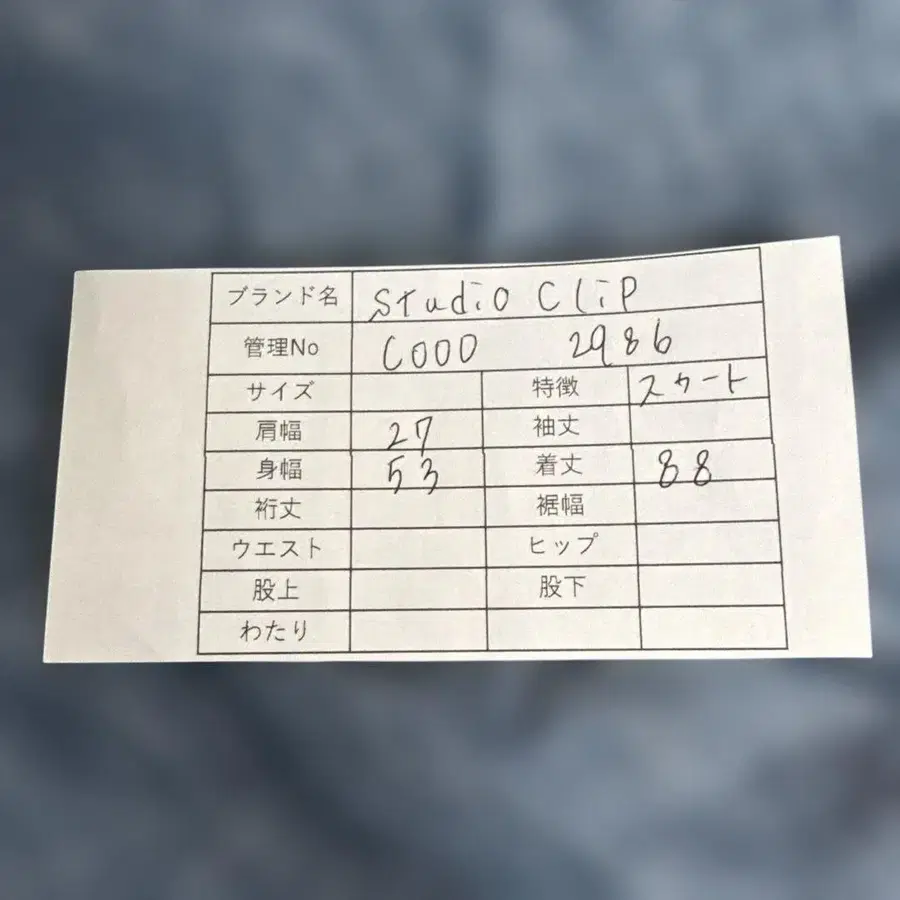 ブランド名 Studio CLiP
管理No C000 2986
サイズ 特徴 スカート
肩幅 27 袖丈
身幅 53 着丈 88
裄丈 裾幅
ウエスト ヒップ
股上 股下
わたり